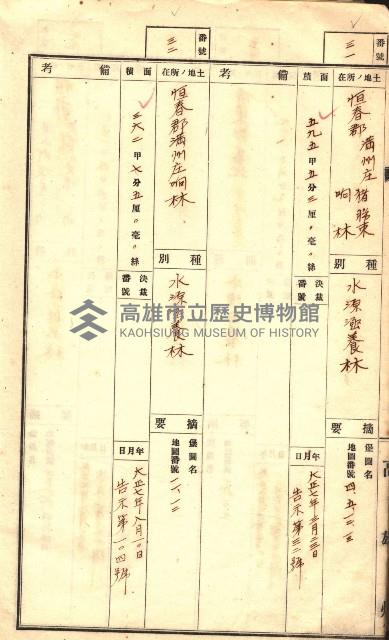 番號
三一
土地ノ所在
恒春郡滿州庄 猪朥束
响林
種別
水源涵養林
摘要
堡圖名
地圖番號 四、五、一二、一三
面積
五九五甲五分三厘〃毫〃絲
年月日
大正七年三月二三日
告示第三二號
備考
番號
三二
土地ノ所在
恒春郡滿州庄响林
種別
水源涵養林
摘要
堡圖名
地圖番號
面積
三六二甲七分五厘〃毫〃絲
決裁番號
年月日
大正七年八月一〇日
告示第一〇四號
備考
高雄市立歷史博物館
KAOHSIUNG MUSEUM OF HISTORY